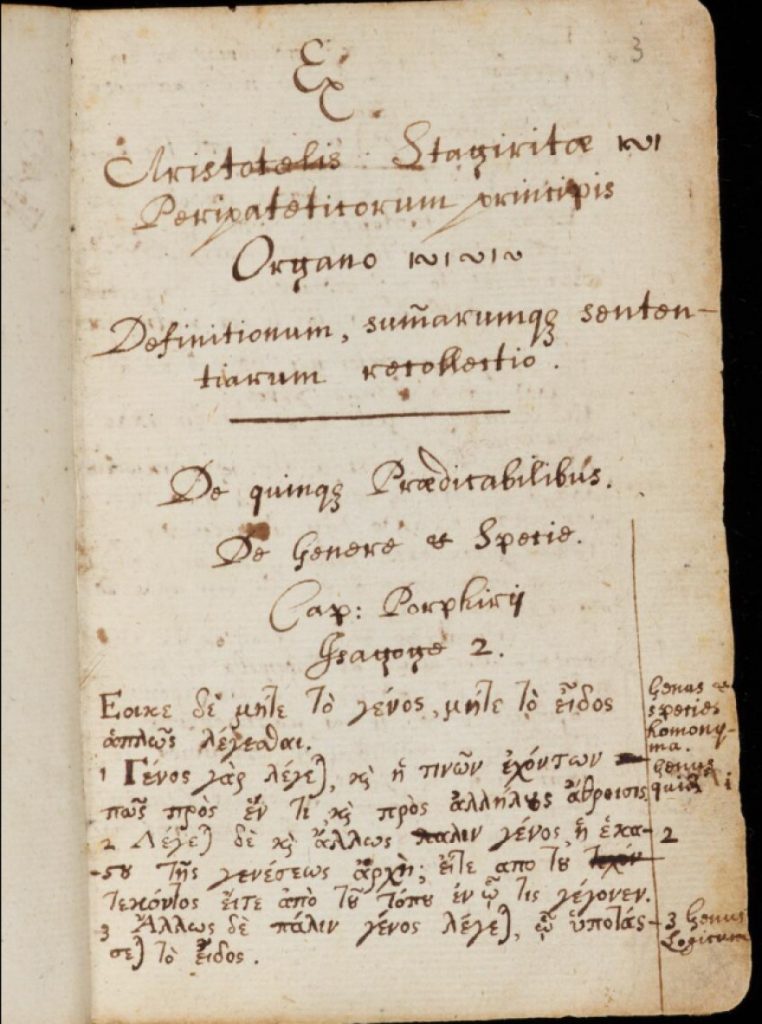 3
Ex
Aristotælis Stagiritæ
Peripateticorum principis
Organo
Definitionum, sum̄arumqꝫ senten-
tiarum recollectio.
De quinqꝫ Prædicabilibus.
De Genere et Specie.
Cap: Porphirij
Isagoge 2.
Εοικε δὲ μήτε τὸ γένος, μήτε τὸ εἶδος
ἁπλῶς λέγεσθαι.
1 Γένος γὰρ λέγε), ϗ ἡ τινῶν ἐχόντων
πῶς πρὸς ἕν τι ϗ πρὸς ἀλλήλȣς ἄθροισις
2 Λέγε) δὲ ϗ ἄλλως παλιν γένος, ἡ ἑκά-
ϛȣ τῆς γενέσεως ἀρχὴ; εἴτε απο τȣ
τεκόντος εἴτε ἀπὸ τȣ͂ τόπȣ ἐν ᾧ τις γέγονεν.
3 Ἄλλως δὲ πάλιν γένος λέγε), ᾧ ὑποτάσ-
σε) τὸ εἶδος.
Genus et
species
homony-
ma.
Genus
quid 1
2
3 Genus
Logicum